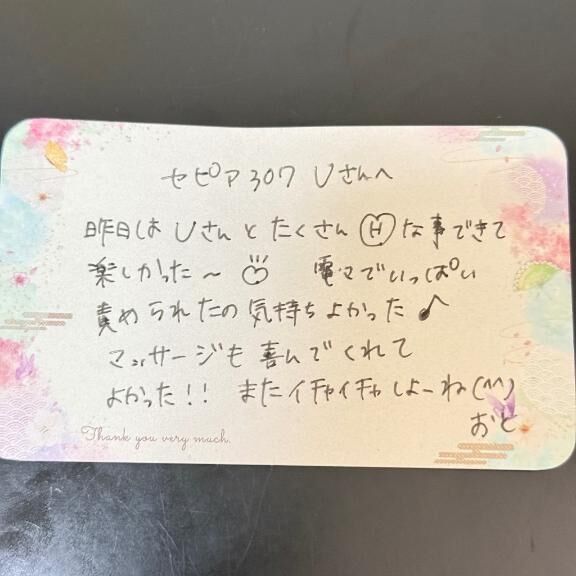 セピア307 Uさんへ
昨日は Uさんと たくさん Ⓗな事できて
楽しかった〜 電マでいっぱい
責められたの気持ちよかった♪
マッサージも喜んでくれて
よかった!! またイチャイチャしよーね(^^)
おと
Thank you very much.